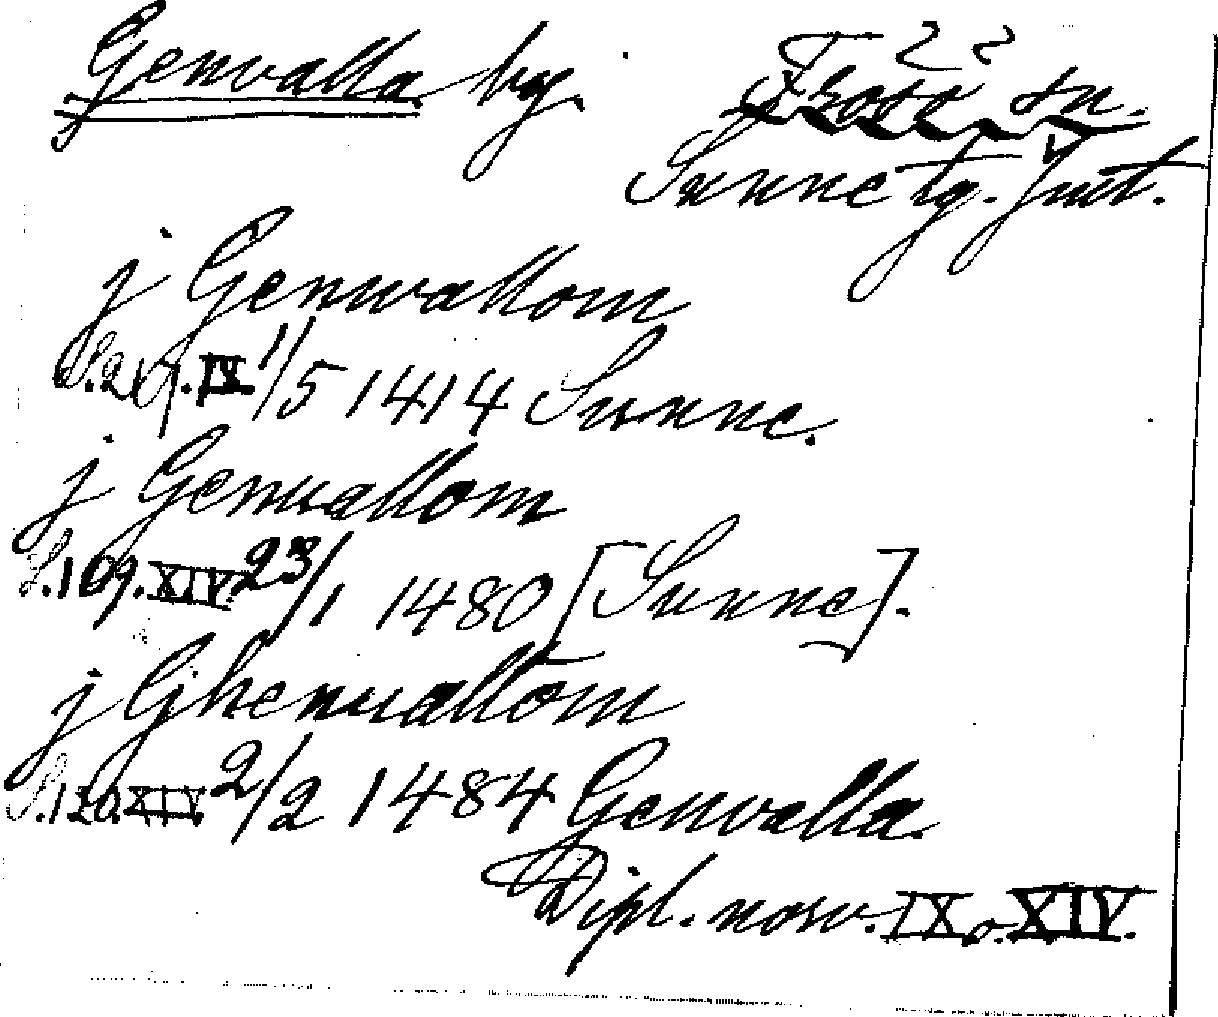 Genvalla by. 22
Frösö sn.
Sunne tg. Jmt.
j Genwallom
S.217.IX 1/5 1414 Sunne.
j Genuallom
S.109.XIV. 23/1 1480 [Sunne].
j Ghenuallom
S.120.XIV. 2/2 1484 Genvalla.
Dipl. norv. IX o. XIV.